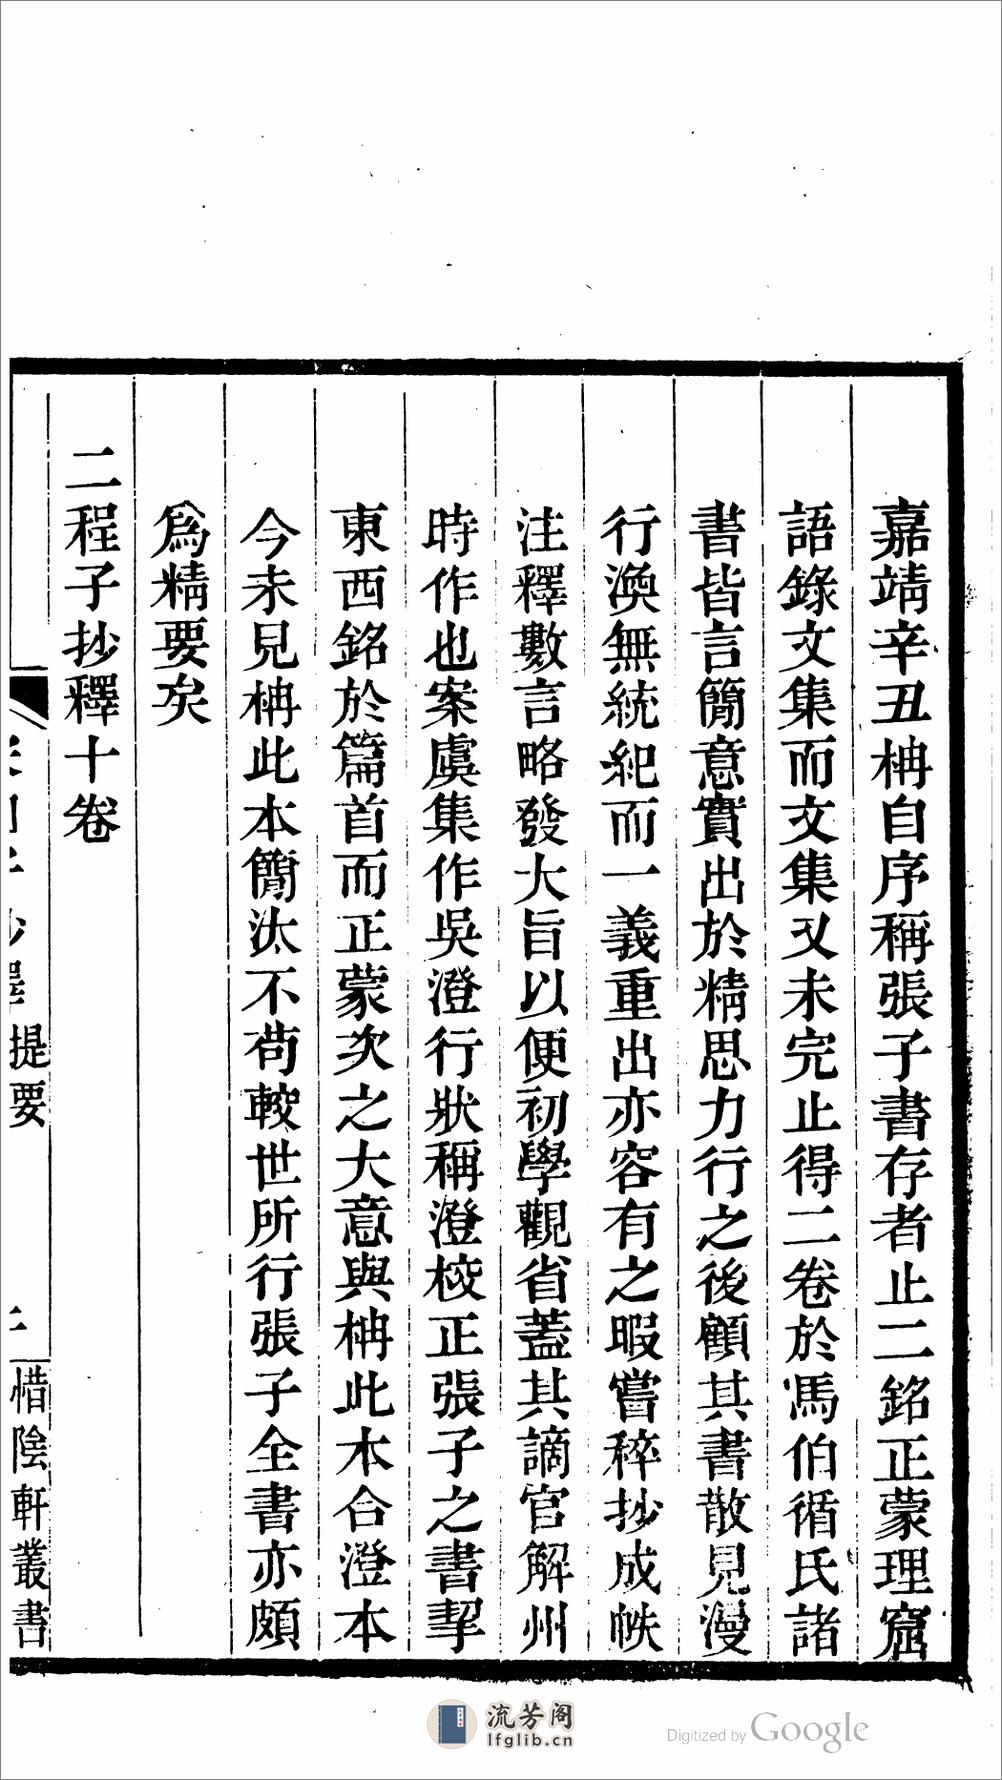 嘉靖辛丑柟自序稱張子書存者止二銘正蒙理窟
語錄文集而文集又未完止得二卷於馮伯循氏諸
書皆言簡意實出於精思力行之後顧其書散見漫
行渙無統紀而一義重出亦容有之暇嘗稡抄成帙
注釋數言略發大旨以便初學觀省蓋其謫官解州
時作也案虞集作吳澄行狀稱澄校正張子之書挈
東西銘於篇首而正蒙次之大意與柟此本合澄本
今未見柟此本簡汰不苟較世所行張子全書亦頗
為精要矣
二程子抄釋十卷
宋四子抄釋提要
惜陰軒叢書
流芳阁
lfglib.cn
Digitized by Google